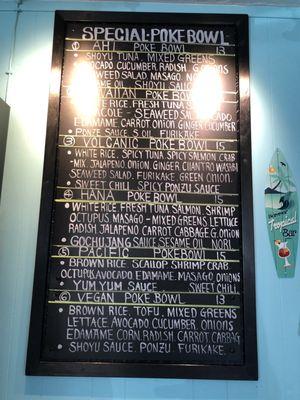 SPECIAL POKE BOWL
① AHI POKE BOWL 13
SHOYU TUNA, MIXED GREENS
AVOCADO CUCUMBER RADISH G. ONIONS
SEAWEED SALAD MASAGO
SESAME OIL SHOYU
POKE BOWL
WHITE RICE, FRESH TUNA
SEAWEED SALAD
EDAMAME CARROT ONION GINGER CUCUMBER
PONZE SAUCE S. OIL FURIKAKE
③ VOLCANIC POKE BOWL 15
WHITE RICE, SPICY TUNA SPICY SALMON, CRAB
MIX, JALAPENO ONION GINGER CILANTRO WASABI
SEAWEED SALAD. FURIKAKE GREEN ONION
SWEET CHILI SPICY PONZU SAUCE
④ HANA POKE BOWL 15
WHITE RICE, FRESH TUNA SALMON, SHRIMP
OCTUPUS MASAGO - MIXED GREENS LETTUCE
RADISH, JALAPENO CARROT CABBAGE G. ONION
GOCHUJANG SAUCE SESAME OIL NORI
⑤ PACIFIC POKE BOWL 15
BROWN RICE, SCALLOP SHRIMP CRAB
OCTUPUS AVOCADO EDAMAME, MASAGO ONIONS
YUM YUM SAUCE SWEET CHILI
⑥ VEGAN POKE BOWL 13
BROWN RICE, TOFU, MIXED GREENS
LETTACE, AVOCADO CUCUMBER, ONIONS
EDAMAME CORN, RADISH, CARROT, CARBAG
SHOYU SAUCE, PONZU, FURIKAKE
Tropical
Bar